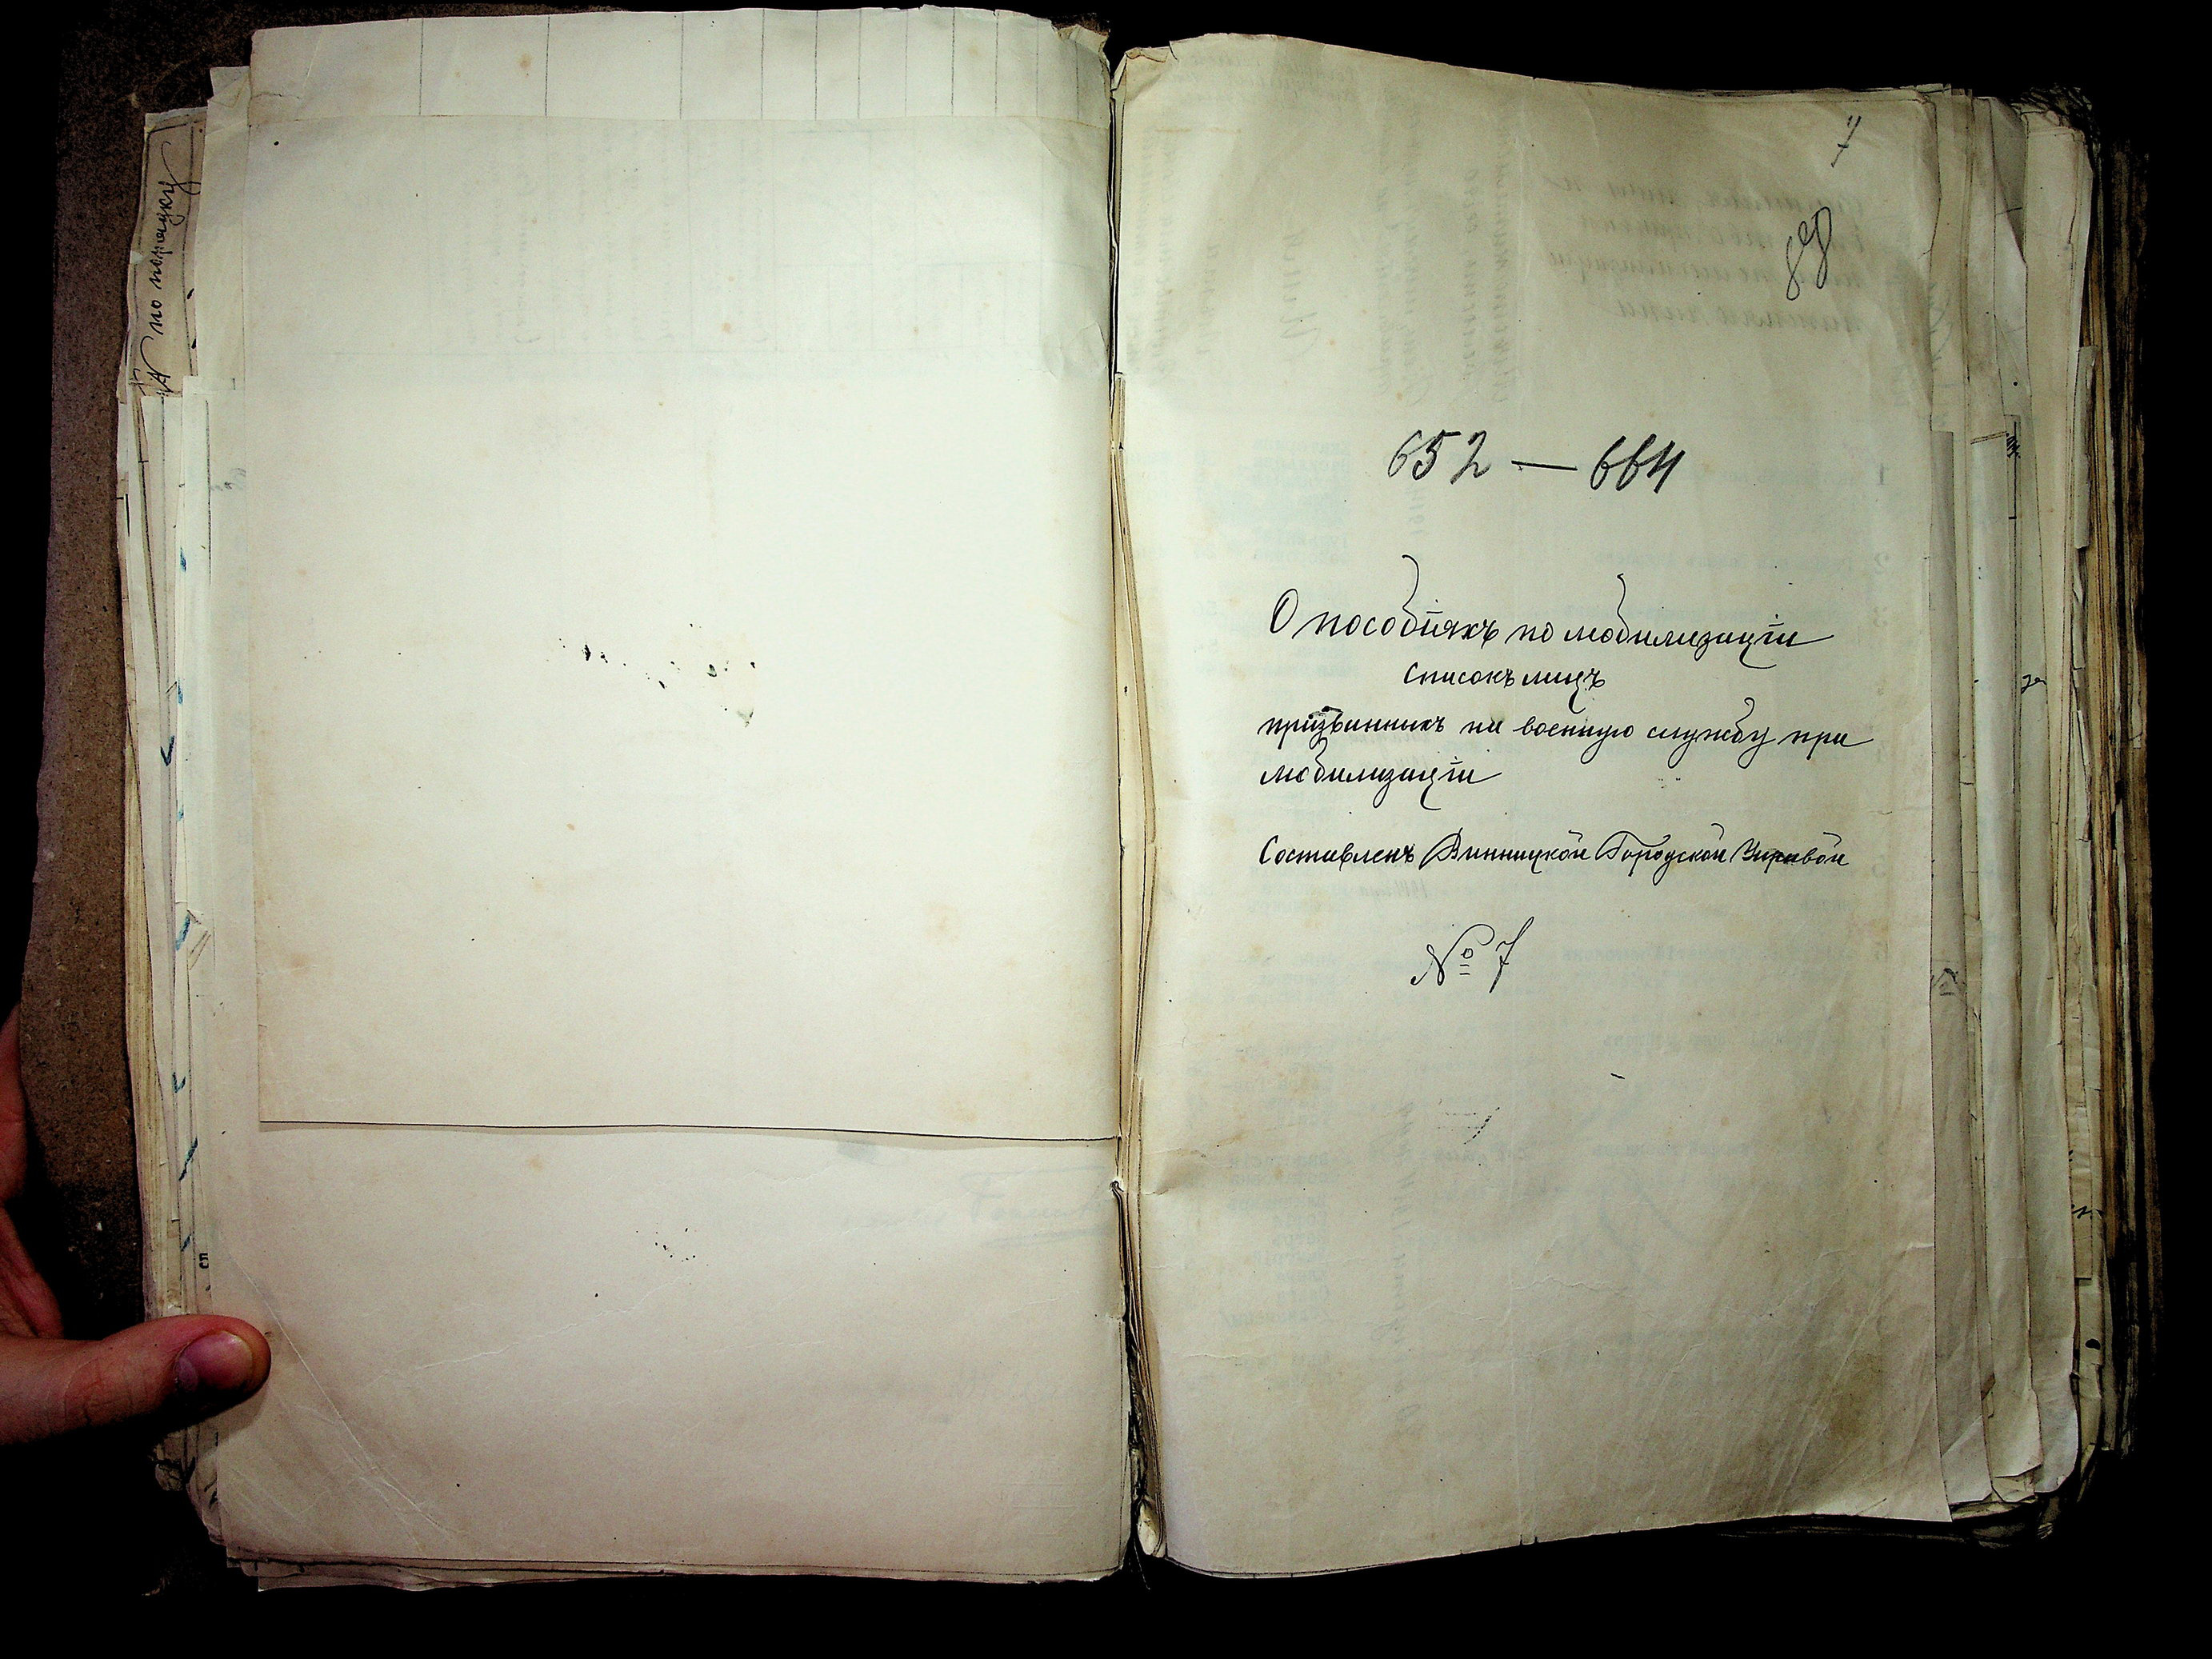 № по порядку
7
652 — 664
О пособіяхъ по мобилизаціи
Списокъ лицъ
призванныхъ на военную службу при
мобилизаціи
Составленъ Винницкой Городской Управой
№ 7